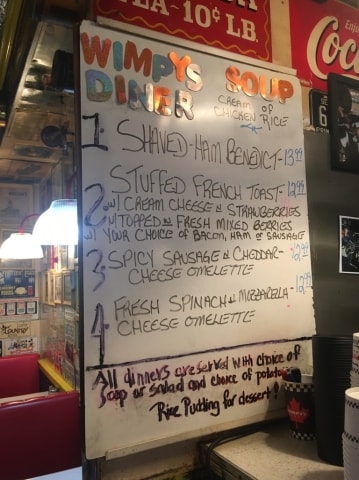 TEA-10¢ LB.
Enjoy
Coca
WIMPYS SOUP
DINER CREAM OF
CHICKEN RICE
1. SHAVED-HAM BENEDICT-13.99
2 STUFFED FRENCH TOAST-12.99
w/ CREAM CHEESE & STRAWBERRIES
w/TOPPED w FRESH MIXED BERRIES
w/ YOUR CHOICE OF BACON, HAM OR SAUSAGE
3. SPICY SAUSAGE & CHEDDAR-12.99
CHEESE OMELETTE
4 FRESH SPINACH & MOZZARELLA-12.99
CHEESE OMELETTE
All dinners are served with choice of
soup or salad and choice of potatoe
Rice Pudding for dessert!